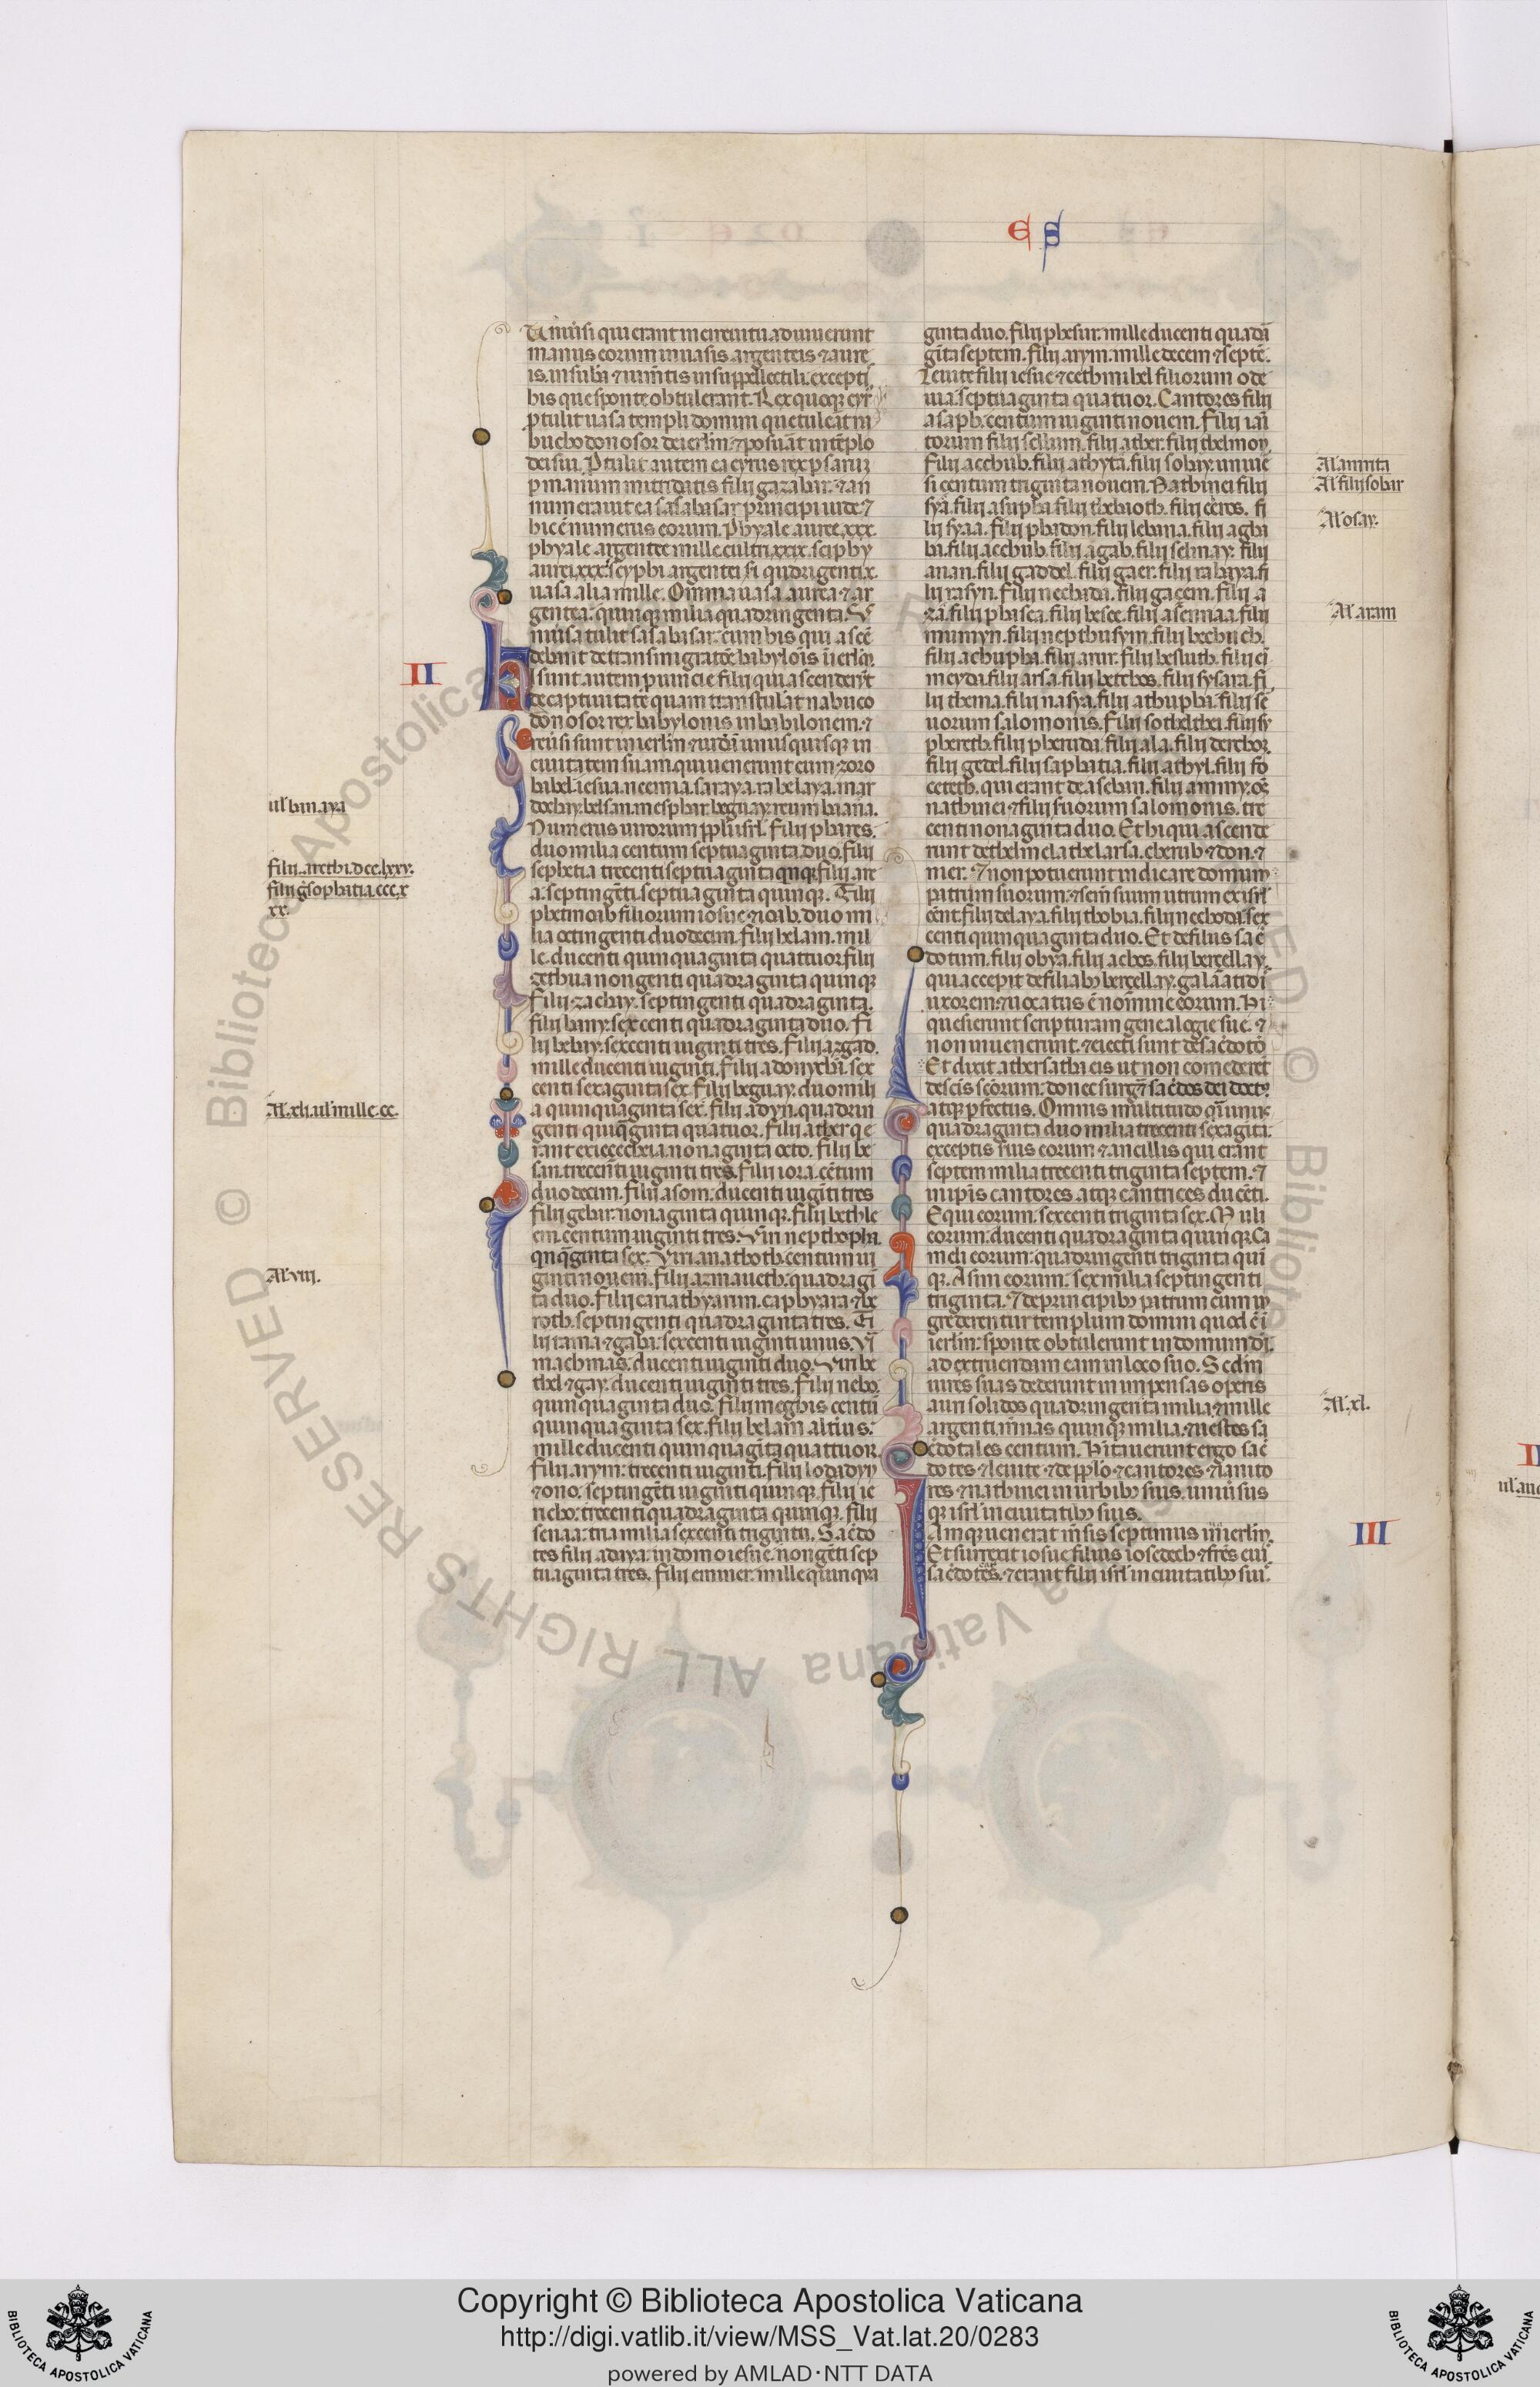 ES
manus eorum in uasis argenteis ⁊ aure
bis que sponte obtulerant. Rex quoque cyr̄
ptulit uasa templi domini que tuleāt na
buchodonosor de ierlm̄. ⁊ posuāt in tēplo
dei sui. Ptulit autem ea cyrus rex psaruȝ
p manum mitridatis filii gazabar. ⁊ an
numerauit ea sasabasar principi iude. ⁊
hic ē numerus eorum. Phyale auree. xxx.
phyale argentee mille. cultri. xxix. sciphy
aurei. xxx. scyphi argentei
uasa alia mille. Omnia uasa aurea ⁊ ar
gentea: quinque milia quadringenta. V
niūsa tulit sasabasar. cum his qui ascē
II
sunt autem puincie filii qui ascenderūt
de captiuitate quam transtulāt nabuco
donosor rex babylonis in babilonem. ⁊
reūsi sunt in ierlm̄ ⁊ iudā unusquisque in
ciuitatem suam. qui uenerunt cum zoro
babel. iesua. neemia. saraya. rahelaya. mar
ul' banaya
dochay. belsan. mesphar. beguay. reum. baana.
Numerus uirorum ppli isrl. filii phares.
duo milia centum septuaginta duo. filii
filii. arethi. dcc. lxxv.
sephetia trecenti septuaginta
filii
a. septingēti septuaginta quinque. Filii
xx.
phetmoab filiorum iosue ⁊ ioab. duo mi
lia octingenti duodecim. filii helam. mil
le. ducenti quinquaginta quattuor. filii
zethua nongenti quadraginta quinque
Filii zachay. septingenti quadraginta.
filii bany. sexcenti quadraginta duo. Fi
lii bebay. sexcenti uiginti tres. Filii azgad.
mille ducenti uiginti. filii adonychā. sex
centi sexaginta sex. Filii beguay. duo mili
Al'. xli. ul' mille. cc.
a quinquaginta sex. filii adyn. quadrin
genti
quatuor. Filii ather
nonaginta octo. filii be
san. trecenti uiginti tres. filii iora. cētum
duodecim. filii asom. ducenti uigīti tres
filii gebar. nonaginta quinque. filii bethle
em. centum uiginti tres. Viri nepthopha.
sex. Viri anathoth. centum ui
Al' viii.
ginti nouem. filii azmaueth. quadragī
ta duo. Filii cariathyarim. caphyara ⁊ be
roth. septingenti quadraginta tres. Fi
lii rama ⁊ gaba. sexcenti uiginti unus. Vi
machmas. ducenti uiginti duo. Viri be
thel ⁊ gay. ducenti uiginti tres. filii nebo.
quinquaginta duo. filii megbis centū
quinquaginta sex. filii helam alterius:
mille ducenti quinquagīta quattuor.
filii arym: trecenti uiginti. filii lodadyd
⁊ ono. septingēti uiginti quinque. filii ie
richo: trecenti quadraginta quinque. filii
senaa: tria milia sexcenti triginta. Sac̄do
tes filii adaya: in domo iesue. nongēti sep
tuaginta tres. filii emmer. mille quinqua
ginta duo. filii phesur. mille ducenti quadā
gīta septem. filii arym. mille decem ⁊ septē.
Leuite filii iesue ⁊ cethmihel filiorum ode
uia. septuaginta quatuor. Cantores filii
asaph. centum uiginti nouem. Filii iāi
torum filii sellum. filii ather. filii thelmon.
filii acchub. filii athyta. filii sobay. uniuē
Al' amita
si centum triginta nouem. Nathinei filii
Al' filii sobar
sya. filii asupha. filii thebaoth. filii ceros. fi
Al' osay.
lii syaa. filii phadon. filii lebana. filii agba
ba. filii acchub. filii agab. filii selmay. filii
anan. filii gaddel. filii gaer. filii rahaya. fi
lii rasyn. Filii nechoda. filii gacem. filii a
za. filii phasea. filii besee. filii asennaa. filii
Al' aram
munyn. filii nepthusym. filii bechuch.
filii achupha. filii arur. filii besluth. filii
meyda. filii arsa. filii bercthos. filii sysara. fi
lii thema. filii nasya. filii athupha. filii se
uorum salomonis. filii sothelthei. filii sy
phereth. filii pheruda. filii ala. filii derchon.
filii gedel. filii saphatia. filii athyl. filii fo
cereth. qui erant de asebam. filii ammy. oēs
nathinei ⁊ filii suorum salomonis. tre
centi nonaginta duo. Et hi qui ascende
runt de thelmela thelarsa. cherub ⁊ don. ⁊
mer. ⁊ non potuerunt indicare domum
patrum suorum. ⁊ semen suum utrum ex isrl
eēnt. filii delaya. filii thobia. filii nechoda. sex
centi quinquaginta duo. Et de filiis sac̄
dotum. filii obya. filii achos. filii bercellay.
qui accepit de filiabȝ bercellay. galaatidī
uxorem. ⁊ uocatus ē nomine eorum. Hi
quesierunt scripturam genealogie sue. ⁊
non inuenerunt. ⁊ eiecti sunt de sac̄doto
Et dixit athersatha eis ut non comederēt
atque pfectus. Omnis multitudo
quadraginta duo milia trecenti sexagīta.
exceptis suis eorum ⁊ ancillis qui erant
septem milia trecenti triginta septem. ⁊
in ipīs cantores atque cantrices ducēti.
Equi eorum. sexcenti triginta sex. Muli
eorum: ducenti quadraginta quinque. Ca
meli eorum: quadringenti triginta quin
que. Asini eorum: sex milia septingenti
triginta. ⁊ de principibȝ patrum cum in
grederentur templum domini quod ē ī
ierlm̄. sponte obtulerunt in domum dei.
ad extruendam eam in loco suo. Sedm
uires suas dederunt in impensas operis
auri solidos quadraginta milia. ⁊ mille
Al'. xl.
argenti. mnas quinque milia. ⁊ uestes sa
cerdotales centum. Hitauerunt ergo sac̄
dotes ⁊ leuite ⁊ de pplo ⁊ cantores ⁊ ianito
res ⁊ nathinei in urbibȝ suis. uniūsus
que isrl in ciuitatibȝ suis.
III
Amque uenerat mēsis septimus in ierlm̄.
Et surrexit iosue filius iosedech ⁊ fr̄es eiꝰ
sac̄dotes. ⁊ erant filii isrl in ciuitatibȝ suis.
© Biblioteca Apostolica Vaticana ALL RIGHTS RESERVED
Copyright © Biblioteca Apostolica Vaticana
http://digi.vatlib.it/view/MSS_Vat.lat.20/0283
powered by AMLAD·NTT DATA
BIBLIOTECA APOSTOLICA VATICANA
BIBLIOTECA APOSTOLICA VATICANA